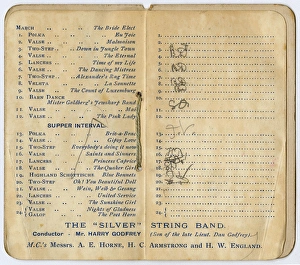 MARCH The Bride Elect
1. POLKA En Joie
2. VALSE Multonison
3. TWO-STEP Down in Jungle Town
4. VALSE The Eternal
5. LANCERS Time of my Life
6. VALSE The Dancing Mistress
7. TWO-STEP Alexander's Rag Time
8. VELETA La Sonnette
9. VALSE The Count of Luxemburg
10. BARN DANCE
Mister Goldberg's Band
11. VALSE Mai
12. VALSE The Pink Lady
SUPPER INTERVAL
13. POLKA Bric-a-Brac
14. VALSE Gipsy Love
15. TWO-STEP Everybody's doing it now
16. VALSE Saints and Sinners
17. LANCERS Princess Caprice
18. VALSE The Quaker Girl
19. HIGHLAND SCHOTTISCHE Blue Bonnets
20. TWO-STEP Oh! You Beautiful Doll
21. VALSE Wein, Weib & Gesang
22. LANCERS United Service
23. VALSE The Sunshine Girl
24. VALSE Nights of Gladness
GALOP The Post Horn
1.
2.
3.
4.
5.
6.
7.
8.
9.
10.
11.
12.
13.
14.
15.
16.
17.
18.
19.
20.
21.
22.
23.
24.
THE "SILVER" STRING BAND.
Conductor - Mr. HARRY GODFREY (Son of the late Lieut. Dan Godfrey).
M.C.'s Messrs. A. E. HORNE, H. C. ARMSTRONG and H. W. ENGLAND.